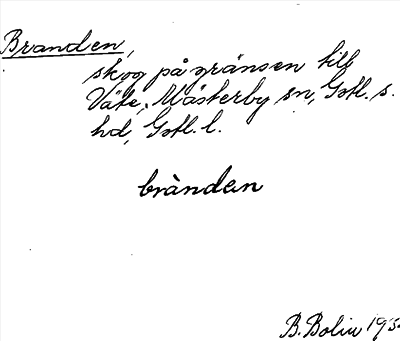 Branden,
skog på gränsen till
Väte, Mästerby sn, Gotl. s.
hd, Gotl. l.
brànden
B. Bolin